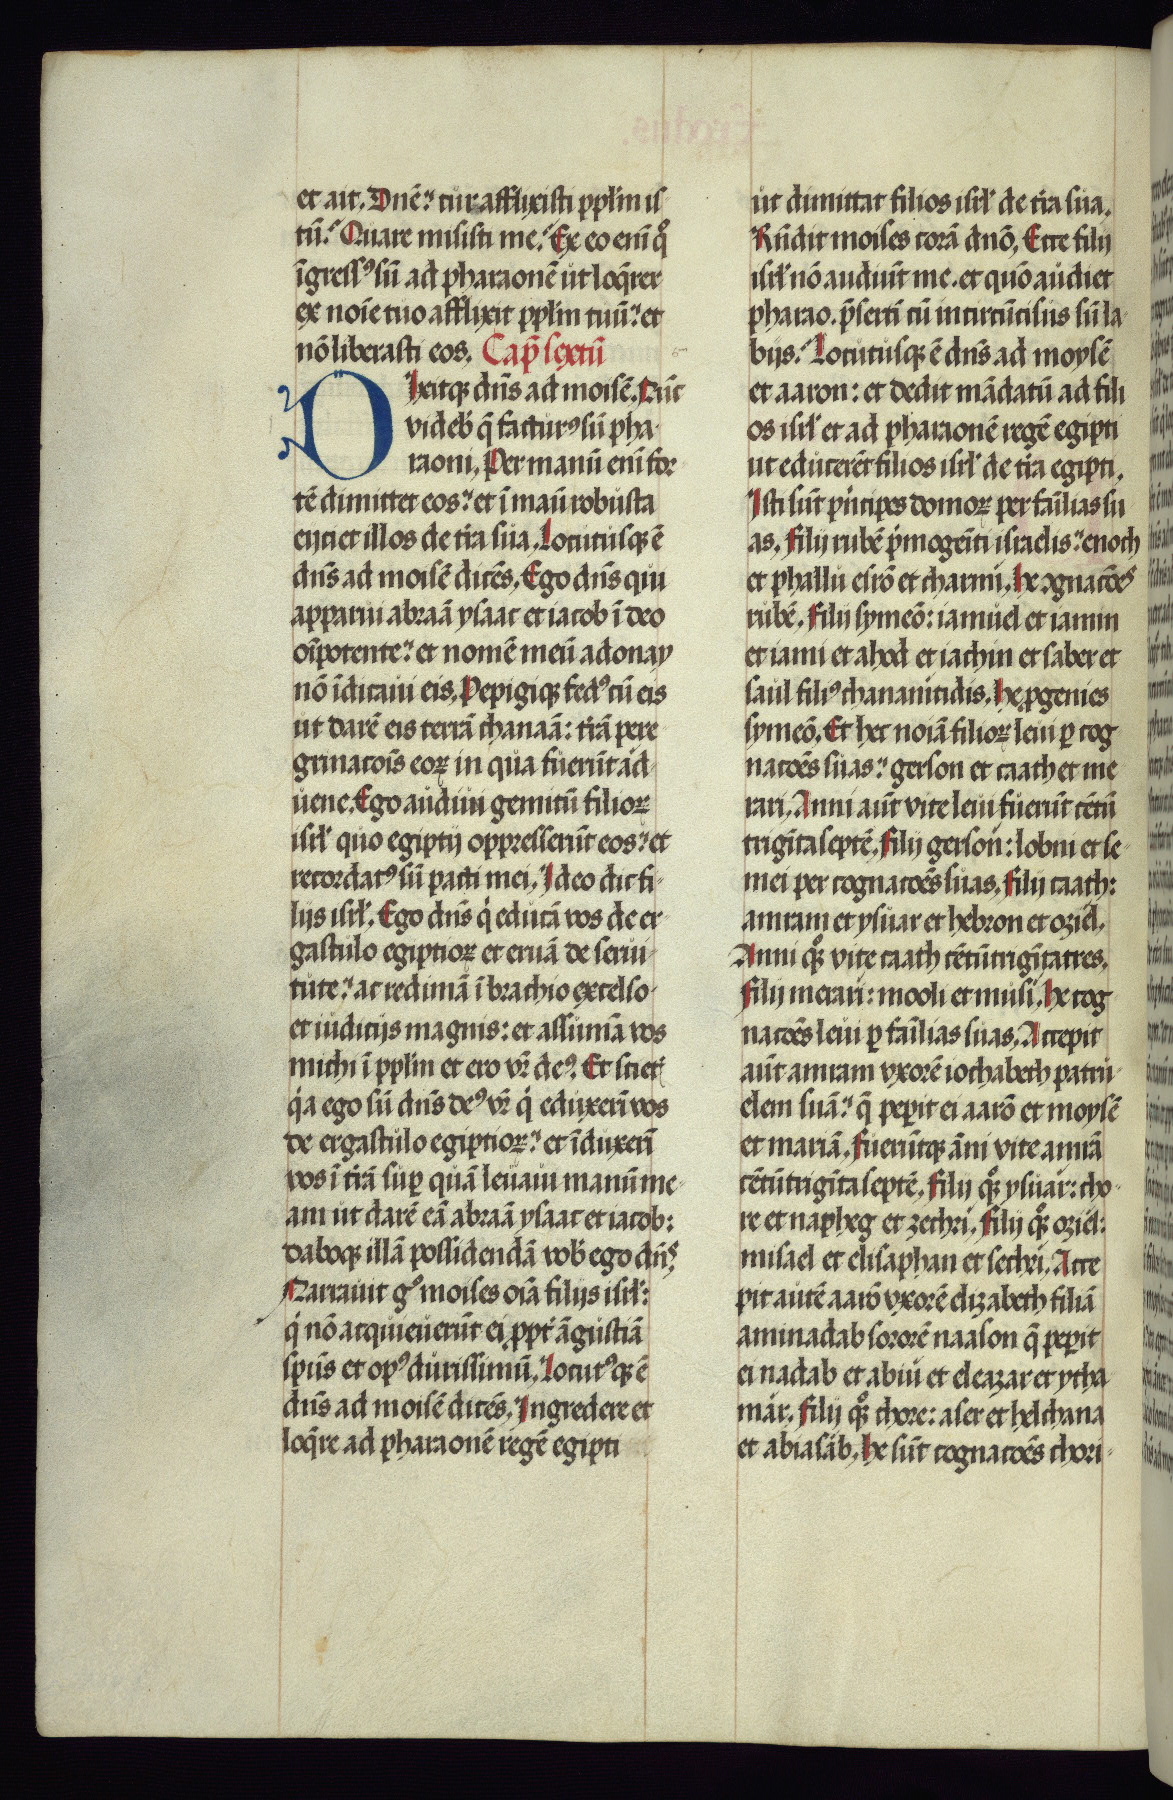 et ait. Dnē? cur afflixisti pplm̄ is
tū? Quare misisti me? Ex eo enī q°
īgress⁹ sū ad pharaonē ut loq̄rer
ex noīe tuo afflixit pplm̄ tuū? et
nō liberasti eos. Cap̄ sextū
Dixitqꝫ dn̄s ad moisē. Nūc
videb̓ q̄ factur⁹ sū pha
raoni. Per manū enī for
tē dimittet eos? et ī maū robusta
eijciet illos de tr̄a sua. Locutusqꝫ ē
dn̄s ad moisē dicēs. Ego dn̄s qui
apparui abraā ysaac et iacob ī deo
oīpotente? et nomē meū adonay
nō īdicaui eis. Pepigiqꝫ fed⁹ cū eis
ut darē eis terrā chanaā: tr̄ā pere
grinacōis eoꝝ in qua fuerūt ad
uene. Ego audiui gemitū filioꝝ
isrl̓ quo egiptij oppresserūt eos? et
recordat⁹ sū pacti mei. Ideo dic fi
lijs isrl̓. Ego dn̄s q̓ educā vos de er
gastulo egiptioꝝ et eruā de serui
tute? ac redimā ī brachio excelso
et iudicijs magnis: et assumā vos
michi ī pplm̄ et ero vr̄ de⁹. Et sciet̓
q̓a ego sū dn̄s de⁹ vr̄ q̓ eduxerī vos
de ergastulo egiptioꝝ? et īduxerī
vos ī tr̄ā suꝑ quā leuaui manū me
am ut darē eā abraā ysaac et iacob:
daboqꝫ illā possidendā vob̓ ego dn̄s
Narrauit g° moises oīa filijs isrl̓:
q̓ nō acquieuerūt ei ppt̓ āgustiā
spūs et op⁹ durissimū. Locut⁹qꝫ ē
dn̄s ad moisē dicēs. Ingredere et
loq̄re ad pharaonē regē egipti
ut dimittat filios isrl̓ de tr̄a sua.
Rn̄dit moises corā dnō. Ecce filij
isrl̓ nō audiūt me. et quō audiet
pharao. p̄sertī cū incircūcisus sū la
bijs? Locutusqꝫ ē dn̄s ad moysē
et aaron: et dedit mādatū ad fili
os isrl̓ et ad pharaonē regē egipti
ut educerēt filios isrl̓ de tr̄a egipti.
Isti sūt p̓ncipes domoꝝ per fāilias su
as. Filij rubē p̓mogēiti israelis? enoch
et phallu esrō et charmi. He ꝯgnacōes
rubē. Filij symeō: iamuel et iamin
et iami et ahod et iachin et saber et
saul fili⁹ chananitidis. He ꝓgenies
symeō. Et hec noīa filioꝝ leui ꝑ cog
nacōes suas? gerson et caath et me
rari. Anni aūt vite leui fuerūt cētū
trigīta septē. Filij gerson: lobni et se
mei per cognacōes suas. Filij caath:
amram et ysuar et hebron et oziel.
Anni qꝫ vite caath cētūtrigītatres.
Filij merari: mooli et musi. He cog
nacōes leui ꝑ fāilias suas. Accepit
aūt amram vxorē iochabeth patru
elem suā? q̄ peꝑit ei aarō et moysē
et mariā. Fuerūtqꝫ āni vite amrā
cētūtrigīta septē. Filij qꝫ ysuar: cho
re et napheg et zechri. Filij qꝫ oziel:
misael et elisaphan et sechri. Acce
pit autē aarō vxorē elizabeth filiā
aminadab sororē naason q̄ peꝑit
ei nadab et abiu et eleazar et ytha
mar. Filij qꝫ chore: aser et helchana
et abiasab. He sūt cognacōes chori